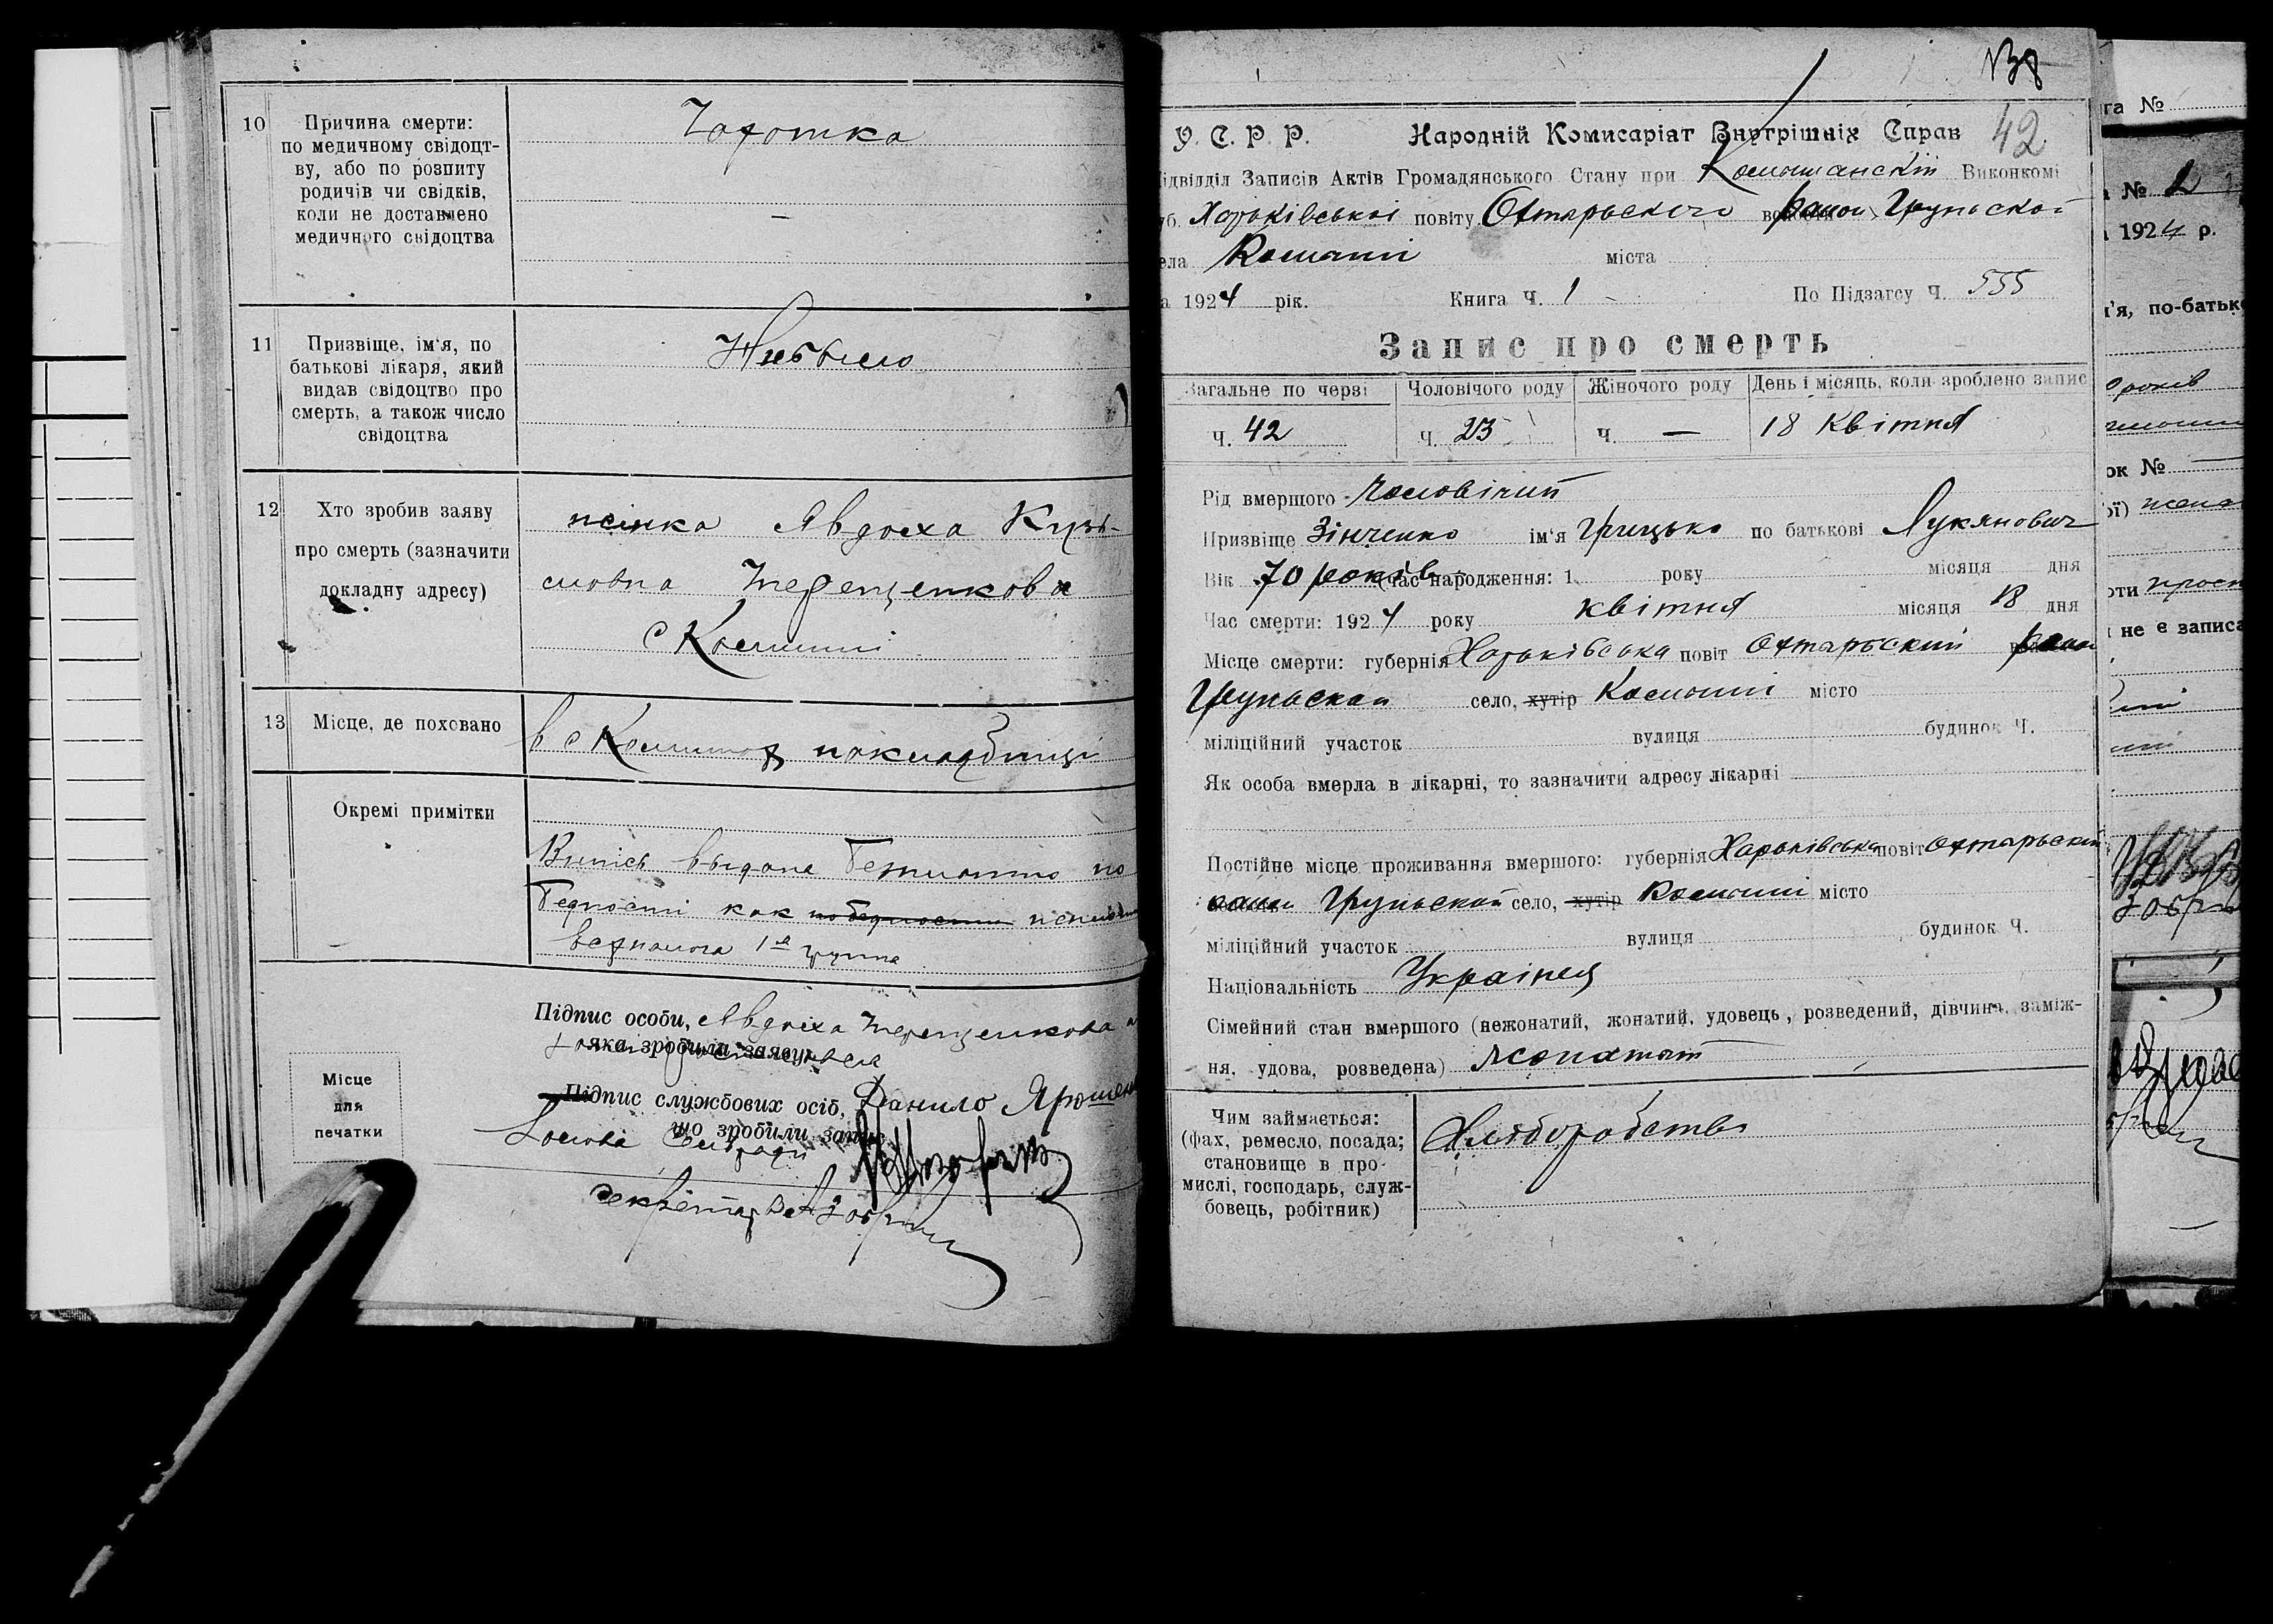 10
Причина смерти:
по медичному свідоцт-
ву, або по розпиту
родичів чи свідків,
коли не доставлено
медичного свідоцтва
Чахотка
11
Призвіще, ім'я, по
батькові лікаря, який
видав свідоцтво про
смерть, а також число
свідоцтва
Небыло
12
Хто зробив заяву
про смерть (зазначити
докладну адресу)
жінка Явдоха Кузь-
мовна Терещенкова
с
13
Місце, де поховано
в с
Окремі примітки
Випись выдана безплатно по
бедности как по бедности
1а группа
Підпис особи, Явдоха Терещенкова
яка зробила заяву
Підпис службових осіб, Данило
що зробили запис
Голова Сельради
Секретарь
Місце
для
печатки
42
У. С. Р. Р. Народній Комисаріат Внутрішніх Справ
ідвідділ Записів Актів Громадянського Стану при Виконкомі
уб. Харьківськоі повіту Охтырьского района Груньской
ела міста
а 1924 рік. Книга Ч. 1 По Підзагсу Ч. 555
Запис про смерть
Загальне по черзі Чоловічого роду Жіночого роду День і місяць, коли зроблено запис
Ч. 42 Ч. 23 Ч. — 18 квітня
Рід вмершого Чоловічий
Призвіще Зінченко ім'я Грицько по батькові Лукянович
Вік 70 років (час народження: 1 року місяця дня
Час смерти: 1924 року квітня місяця 18 дня
Місце смерти: губернія Харьківська повіт Охтырьский район
Груньский село, хутір місто
міліційний участок вулиця будинок Ч.
Як особа вмерла в лікарні, то зазначити адресу лікарні
Постійне місце проживання вмершого: губернія Харьківська повіт Охтырьский
район Груньской село, хутір місто
міліційний участок вулиця будинок Ч.
Національність Украінец
Сімейний стан вмершого (нежонатий, жонатий, удовець, розведений, дівчина, заміж-
ня, удова, розведена) жонатый
Чим займається:
(фах, ремесло, посада;
становище в про-
мислі, господарь, служ-
бовець, робітник)
Хлеборобство
га №
а № 2
1924 р.
'я, по-батьк
років
ок №
ої) жена
оти
не є записа